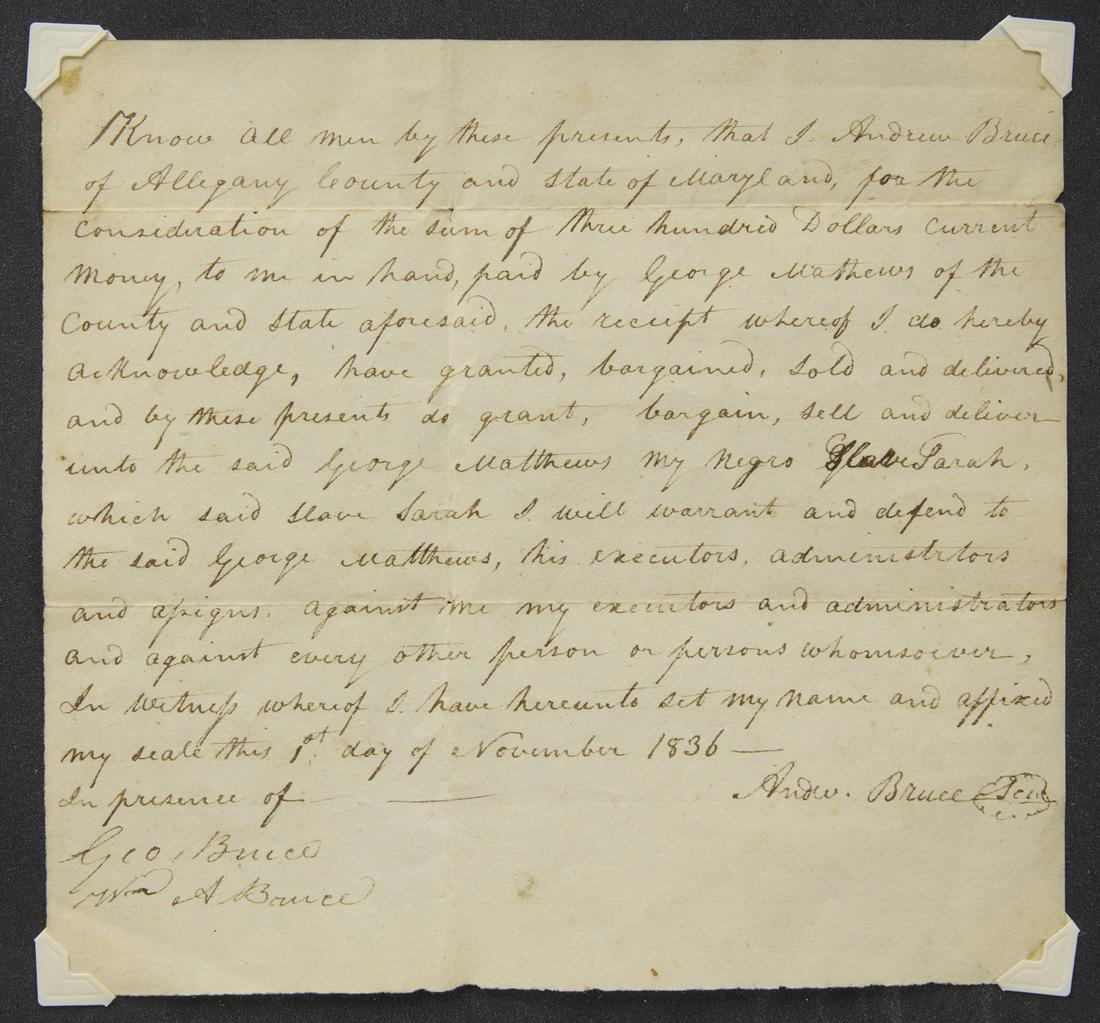 Know all men by these presents, that I Andrew Bruce
of Allegany County and State of Maryland, for the
Consideration of the sum of three hundred Dollars Current
Money, to me in hand, paid by George Mathews of the
County and State aforesaid, the receipt whereof I do hereby
acknowledge, have granted, bargained, sold and delivered,
and by these presents do grant, bargain, sell and deliver
unto the said George Matthews my Negro Slave Sarah,
which said Slave Sarah I will warrant and defend to
the said George Matthews, his executors, administrtors
and assigns. against me my executors and administrators
and against every other person or persons whomsoever,
In Witness whereof I have hereunto set my name and affixed
my seale this 1st day of November 1836 —
In presence of — — Andw. Bruce Seal
Geo, Bruce
Wm A Bruce